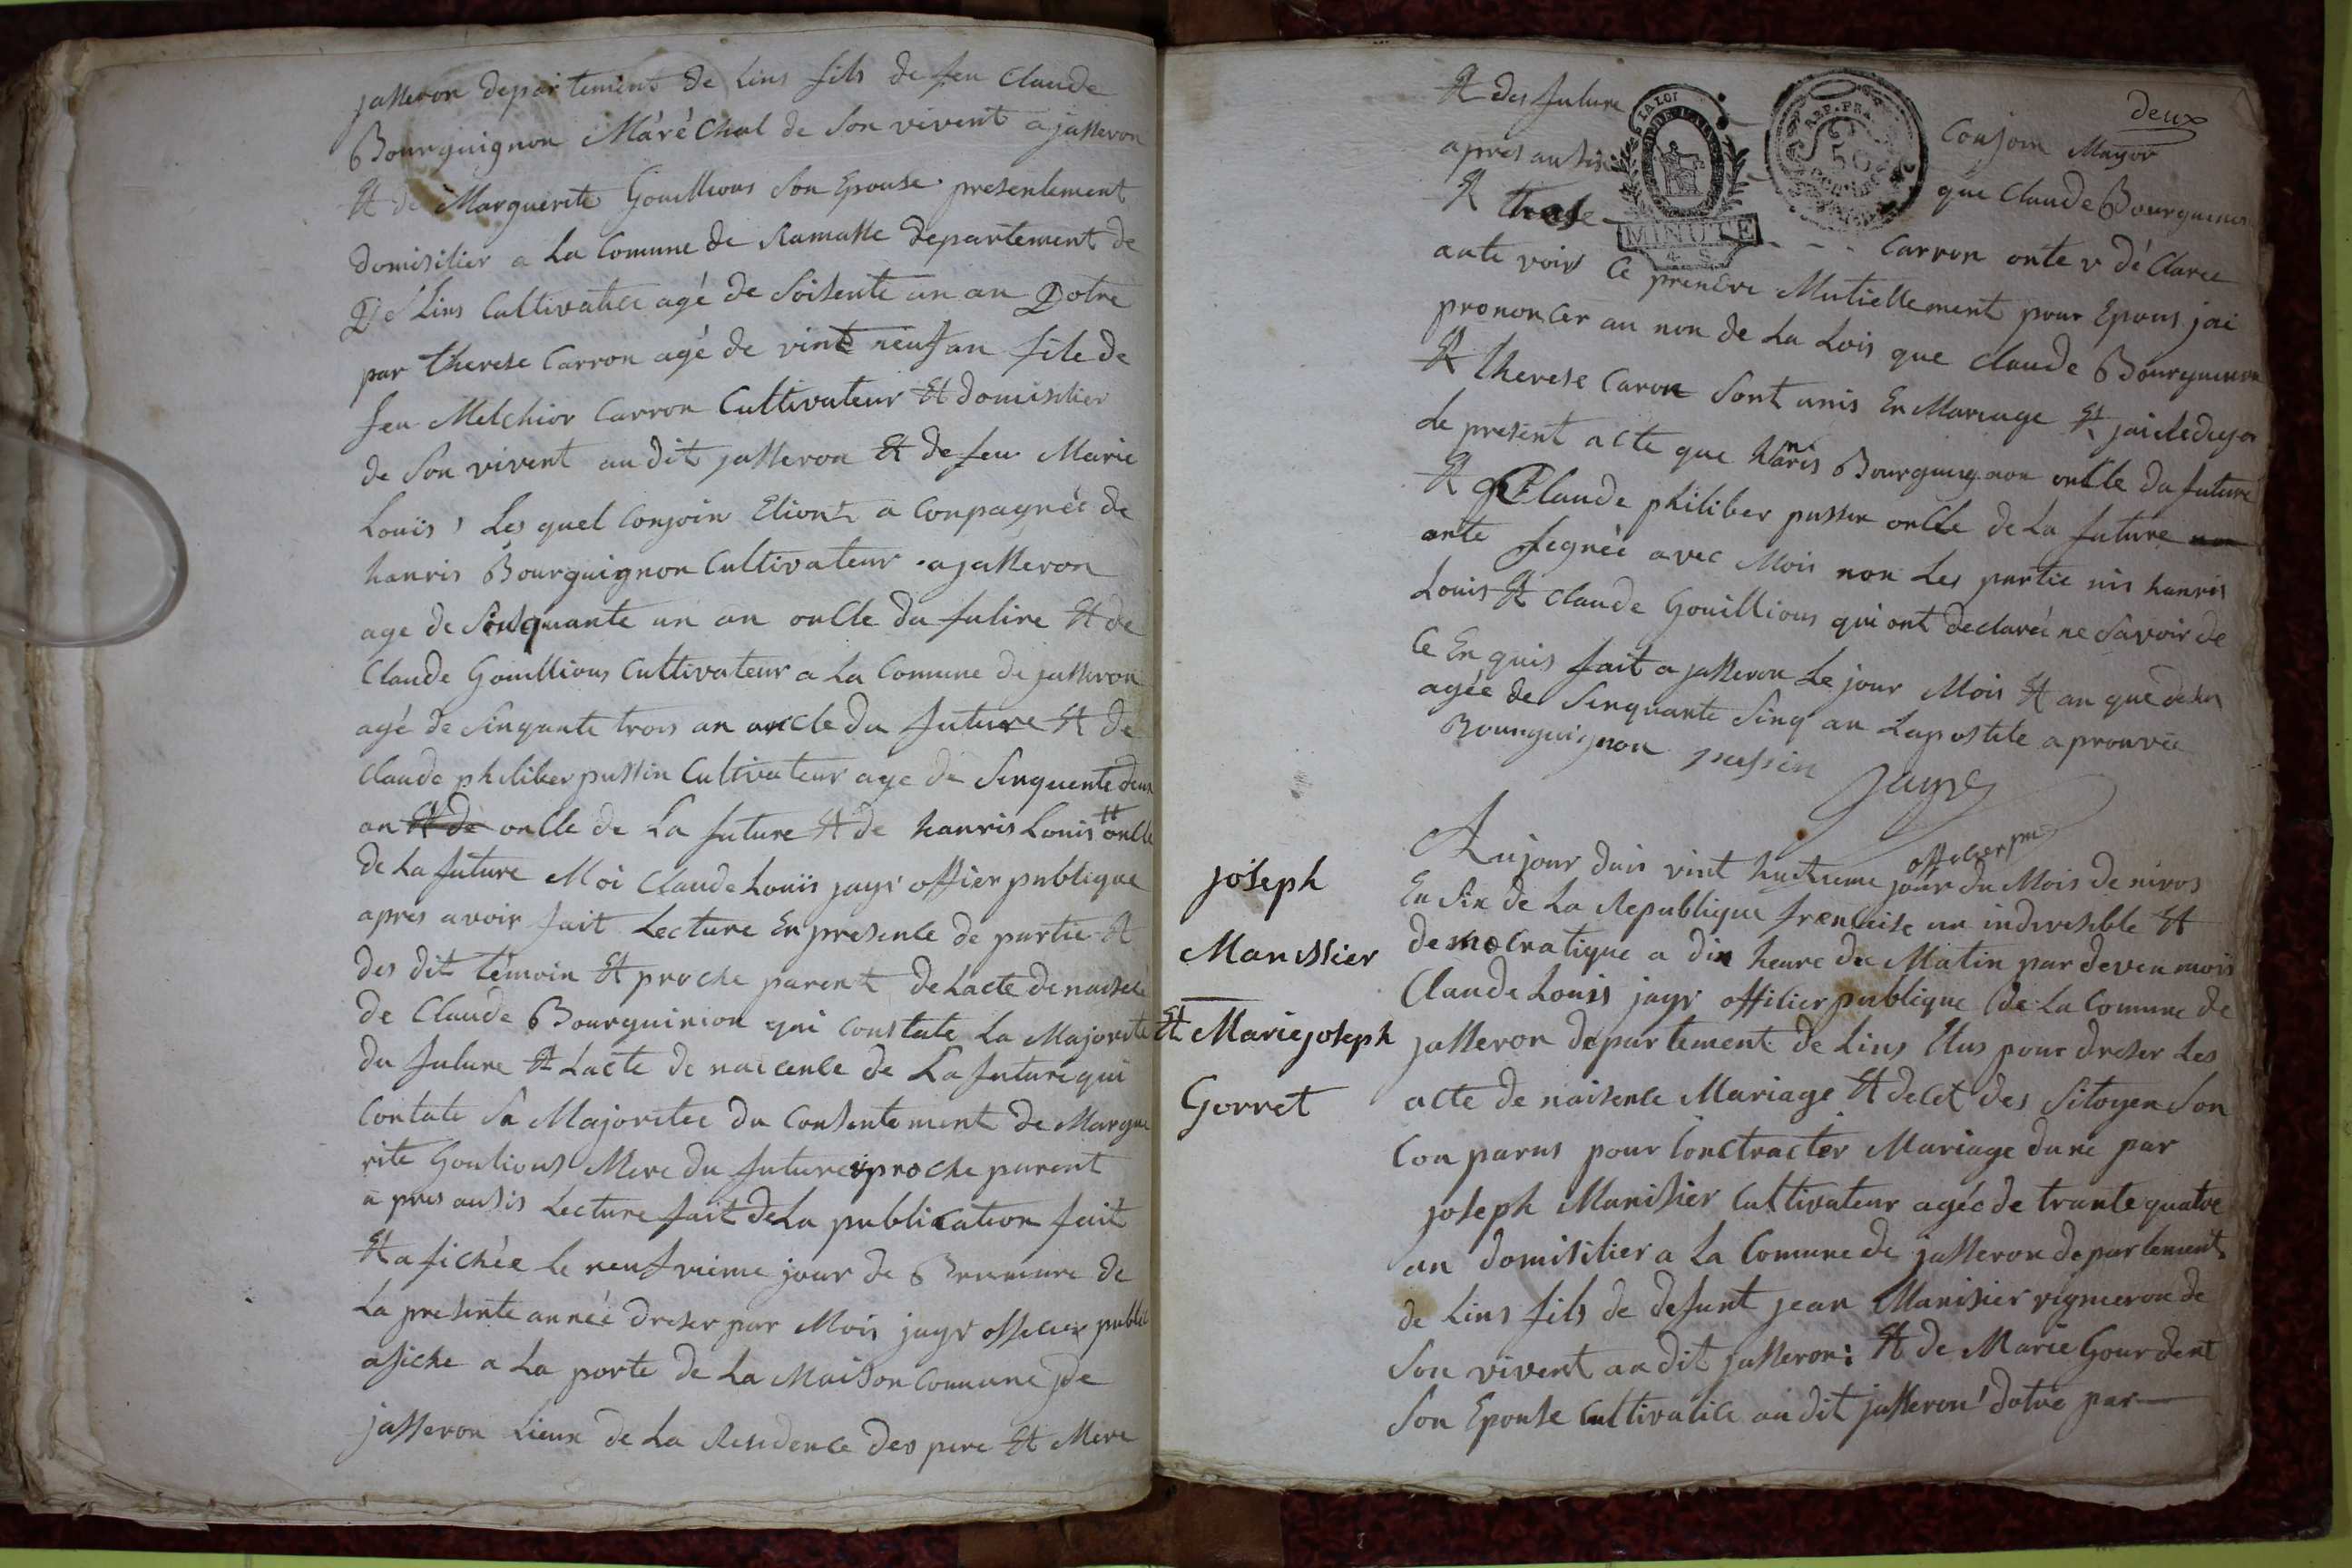 jasseron departement de Lins fils de feu Claude
Bourguignon Maréchal de Son vivent a jasseron
Et de Marguerite Gouillious Son Epouse presentement
domisilier a La Comune de Ramasse departement de
De Lins Cultivatice agé de Soisente un an Dotre
par therese Carron agé de vint neuf an file de
feu Melchior Carron Cultivateur Et domisilier
de Son vivent au dit jasseron Et de feu Marie
Louïs, Les quel Conjoin Etiont a Conpagnée de
hanris Bourguignon Cultivateur a jasseron
age de Sinquante un an oncle du future Et de
Claude Gouillious Cultivateur a La Comune de jasseron
agé de Sinquante trois an oncle du future Et de
Claude philiber pussin Cultivateur age de Sinquente deux
an Et de oncle de La future Et de hanris Louis oncle
de La future Moi Claude Louïs jayr offier publique
apres avoir fait Lecture En presence de partie Et
des dit témoin Et proche parent de Lacte de naisence
de Claude Bourguinion qui Constate La Majorité
du future Et Lacte de naicence de La future qui
Contate Sa Majoritee du Consentement de Margue
rite Goulious Mere du future proche parent
a pres ausis Lecture fait de La publication fait
Et afichée le neufvieme jour de Brumaire de
La presente année dreser par Mois jayr officier public
afiche a La porte de La Maison Comune de
jasseron Lieux de La Residence des pere Et Mere
deux
Et des future Conjoin Mayor
apres ausis que Claude Bourguinion
LA LOI
REP. FRA.
50
MINUTE
Et therese Carron onte v déClaree
aute voix Ce prendre Mutiellement pour Epous jai
prononcer au non de La Lois que Claude Bourguinon
Et therese Caron Sont unis En Mariage Et jai
Le present acte que hanris Bourguignon oncle du future
Et Claude philiber pussin oncle de La future non
onte Segnée avec Mois non Les partie nis hanris
Louis Et Claude Gouillious qui ont declarée ne Savoir de
Ce En quis fait a jasseron Le jour Mois Et an que desus
agée de Sinquante Sinq an Lapostile aprouvée
Bourguignon pussin
Jayr
officier
Aujour duis vint huitieme jour du Mois de nivos
En Six de La Republique francaise un indivisible Et
democratique a dix heure du Matin par deven mois
Claude Louis jayr offilier publique de La Comune de
jasseron departement de Lins Elus pour dreser Les
acte de naisence Mariage Et decet des Sitoyen Son
Conparus pour Conctracter Mariage dune par
joseph Manisier Cultivateur agée de trante quatre
an domisilier a La Comune de jasseron departement
de Lins fils de defunt jean Manisier vigneron de
Son vivent au dit jasseron: Et de Marie Gourdent
Son Epouse Cultivatice au dit jasseron dotre par
joseph
Manissier
Et Marie joseph
Gorret